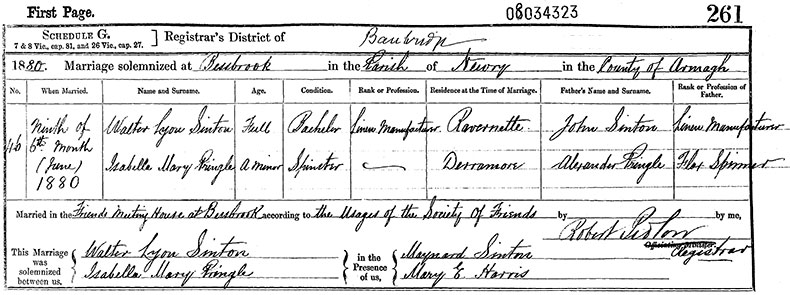 First Page. 08034323 261
SCHEDULE G.
7 & 8 Vic., cap. 81, and 26 Vic., cap. 27. } Registrar's District of Banbridge
1880. Marriage solemnized at Bessbrook in the Parish of Newry in the County of Armagh
No. When Married. Name and Surname. Age. Condition. Rank or Profession. Residence at the Time of Marriage. Father's Name and Surname. Rank or Profession of Father.
46 Ninth of 6th Month (June) 1880
Walter Lyon Sinton Full Bachelor Linen Manufacturer Ravernette John Sinton Linen Manufacturer
Isabella Mary Pringle A minor Spinster — Derramore Alexander Pringle Flax Spinner
Married in the Friends Meeting House at Bessbrook, according to the Usages of the Society of Friends by by me,
Robert
Officiating Minister
Registrar
This Marriage was solemnized between us, { Walter Lyon Sinton
Isabella Mary Pringle } in the Presence of us, { Maynard Sinton
Mary E. Harris